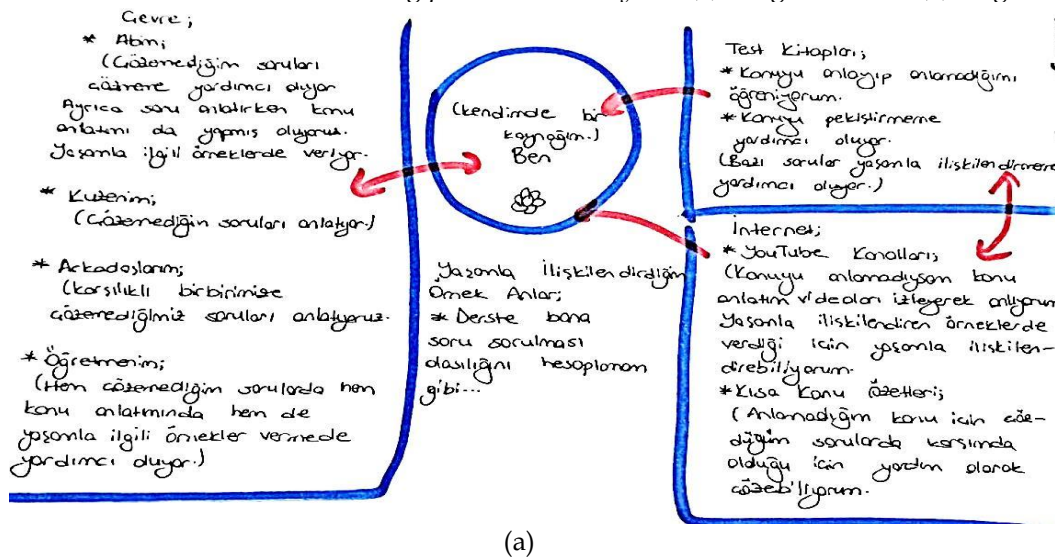 Çevre;
* Abim;
(Çözemediğim soruları
çözmeme yardımcı oluyor
Ayrıca soru anlatırken konu
anlatımı da yapmış oluyoruz.
Yaşamla ilgili örneklerde veriyor.
* Kuzenim;
(Çözemediğim soruları anlatıyor.)
* Arkadaşlarım;
(karşılıklı birbirimize
çözemediğimiz soruları anlatıyoruz.
* Öğretmenim;
(Hem çözemediğim sorularda hem
konu anlatımında hem de
yaşamla ilgili örnekler vermede
yardımcı oluyor.)
(kendimde bir
kaynağım.)
Ben
Yaşamla İlişkilendirdiğim
Örnek Anlar;
* Derste bana
soru sorulması
olasılığını hesaplamam
gibi...
Test Kitapları;
* Konuyu anlayıp anlamadığımı
öğreniyorum.
* Konuyu pekiştirmeme
yardımcı oluyor.
(Bazı sorular yaşamla ilişkilendirmeme
yardımcı oluyor.)
İnternet;
* YouTube Kanalları;
(Konuyu anlamadıysam konu
anlatım videoları izleyerek anlıyorum
Yaşamla ilişkilendiren örneklerde
verdiği için yaşamla ilişkilen-
direbiliyorum.
* Kısa Konu Özetleri;
(Anlamadığım konu için çöz-
düğüm sorularda karşımda
olduğu için yardım olarak
çözebiliyorum.
(a)